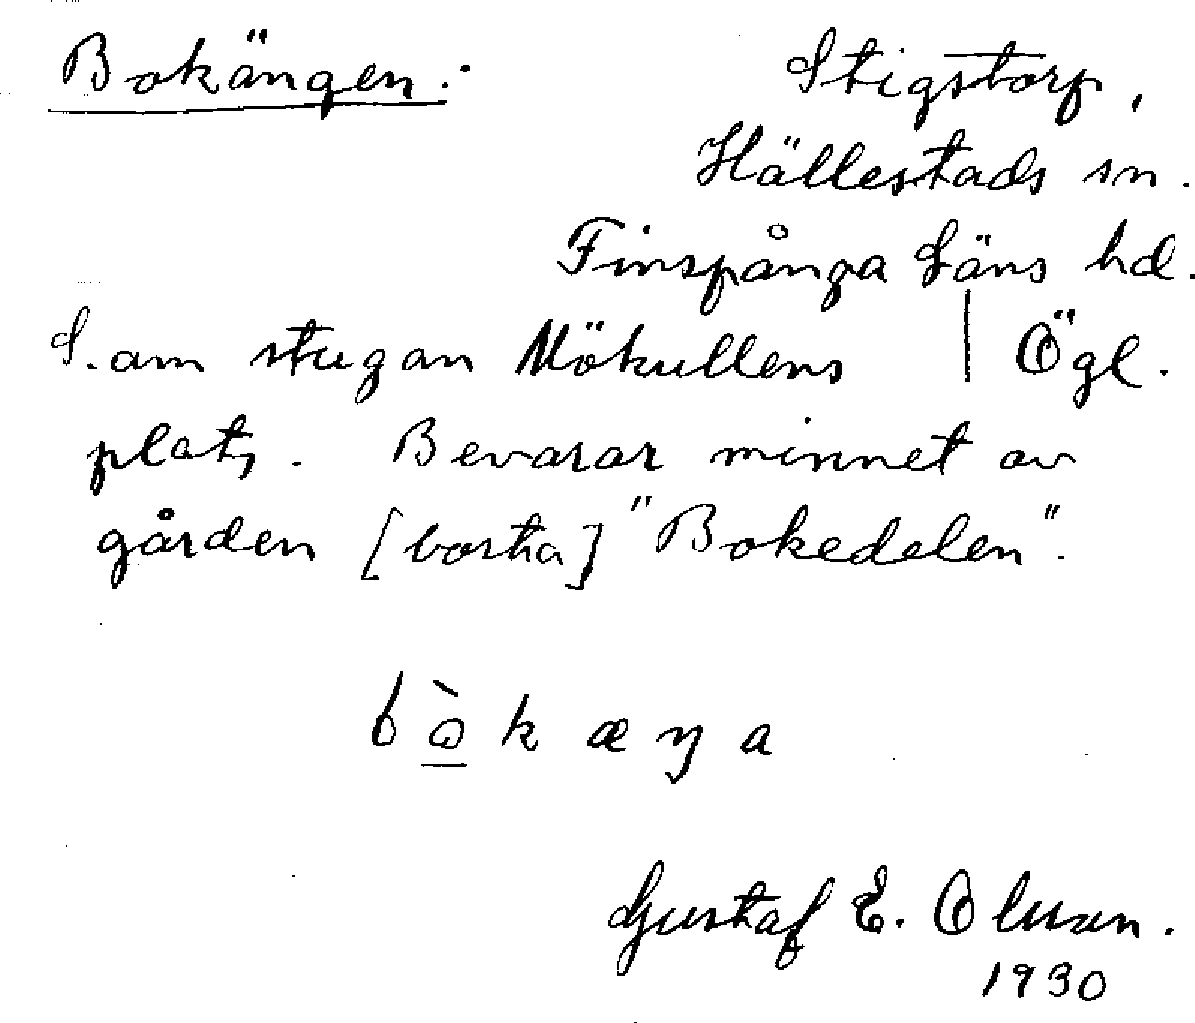 Bokängen: Stigstorp,
Hällestads sn.
Finspånga Läns hd.
S. om stugan Mökullens | Ögl.
plats. Bevarar minnet av
gården [borta] "Bokedelen".
bò̱kæŋa
Gustaf E. Olsson.
1930